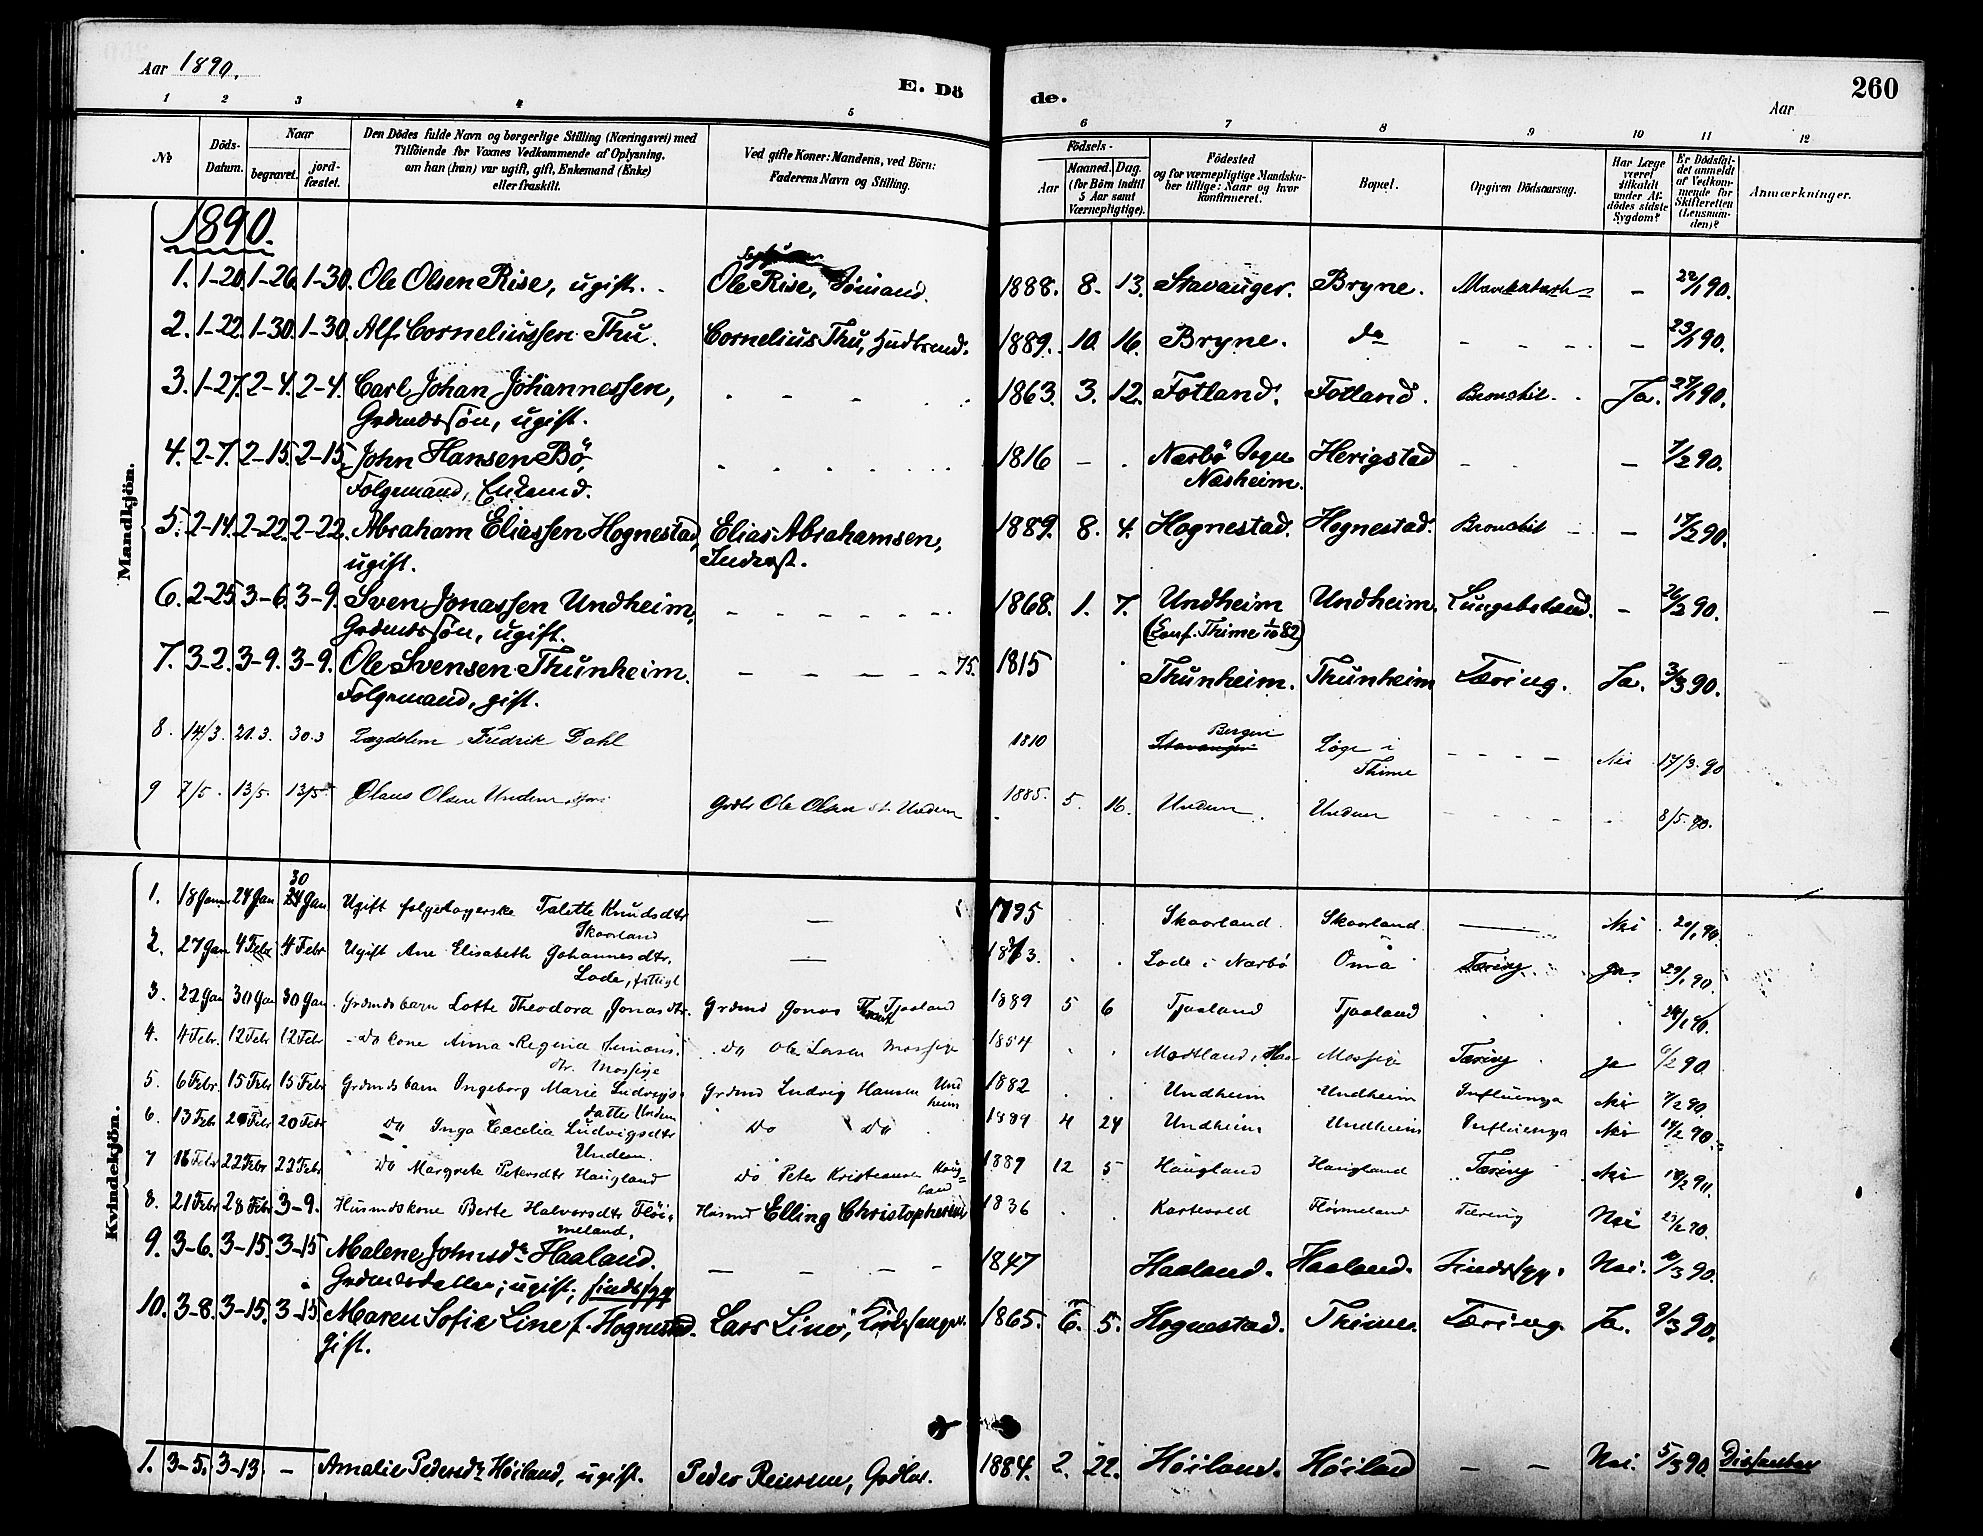 Aar 1890.
E. Dö
de.
Aar
260
1 2 3 4 5 6 7 8 9 10 11 12
No
Döds-Datum.
Naar
begravet.
jord-fæstet.
Den Dödes fulde Navn og borgerlige Stilling (Næringsvei) med
Tilföiende for Voxnes Vedkommende af Oplysning,
om han (hun) var ugift, gift, Enkemand (Enke)
eller fraskilt.
Ved gifte Koner: Mandens, ved Börn:
Faderens Navn og Stilling.
Födsels-
Aar
Maaned. Dag.
(for Börn indtil
5 Aar samt
Værnepligtige).
Födested
og for værnepligtige Mandskaber tillige: Naar og hvor
konfirmeret.
Bopæl.
Opgiven Dödsaarsag.
Har Læge
været
tilkaldt
under Afdödes sidste
Sygdom?
Er Dödsfaldet anmeldt
af Vedkommende for
Skifteretten
(Lensmanden)?
Anmærkninger.
Mandkjön.
1890.
1. 1-20. 1-26. 1-30. Ole Olsen Rise, ugift. Ole Rise, Sömand. 1888. 8. 13. Stavanger. Bryne. – 22/1 90.
2. 1-22. 1-30. 1-30. Alf Corneliussen Thu. Cornelius Thu, 1889. 10. 16. Bryne. do – – – – 23/1 90.
3. 1-27. 2-4. 2-4. Carl Johan Johannessen, 1863. 3. 12. Fotland. Fotland. Bronchit. Ja. 27/1 90.
Grdmdssön, ugift.
4. 2-7. 2-15. 2-15. John Hansen Bö, 1816 – . Nærbö Sogn Herigstad – 7/2 90.
Folgemand, Enkemd. Næsheim.
5. 2-14. 2-22. 2-22. Abraham Eliassen Hognestad, Elias Abrahamsen, 1889. 8. 4. Hognestad. Hognestad. Bronchit – 17/2 90.
ugift. Inderst.
6. 2-25. 3-6. 3-9. Sven Jonassen Undheim, 1868. 1. 7. Undheim Undheim. – 26/2 90.
Grdmdssön, ugift. (Conf. Thime 1/10 82)
7. 3-2. 3-9. 3-9. Ole Svensen Thunheim. 75. 1815 Thunheim. Thunheim Tæring. Ja. 3/3 90.
Folgemand, gift.
8. 14/3. 21.3. 30.3 Lægdslem Fredrik Dahl 1810 Stavanger Bergen Löge i Nei 17/3.90
Thime
9 7/5. 13/5. 13/5. Olaus Olsen Undem Grdbr Ole Olsen Undem 1885. 5. 16. Undem Undem 8/5.90.
Kvindekjön.
1. 18 Jan 24 Jan 30 24 Jan Ugift Talette Knudsdtr – 1795 Skaarland Skaarland. – Nei 20/1 90.
Skaarland
2. 27 Jan 4 Febr 4 Febr Ugift Ane Elisabeth Johannesdtr. – Lode i Nærbö Oma Tæring Ja 29/1 90.
Lode,
3. 22 Jan 30 Jan 30 Jan Grdmdsbarn Lotte Theodora Jonasdtr. Grdmd Jonas Tjaaland 1889 5 6 Tjaaland Tjaaland 24/1 90.
4. 4 Febr. 12 Febr 12 Febr Do kone Anna Regina Simons- Do Ole Larsen Mossige 1854 Mossige Tæring Ja 6/2 90
dtr. Mossige
5. 6 Febr. 15 Febr 15 Febr Grdmdsbarn Ingeborg Marie Ludvigs- Grdmd Ludvig Hansen Undheim 1882 Undheim Undheim Influenza Nei 7/2 90.
datter Undem
6. 13 Febr 20 Febr 20 Febr Do Inga Cecelia Ludvigsdtr Do Do 1889 4 24 Undheim Undheim Influenza Nei 14/2 90.
Undem.
7 16 Febr 22 Febr 22 Febr Do Margrete Petersdtr Haugland Do Peter Haugland 1889 12 5 Haugland Haugland Tæring Nei 18/2 90.
8. 21 Febr 28 Febr 3-9. Husmdskone Berte Halvorsdtr Flöi- Husmd Elling Christophersen 1836 Flöimeland Tæring Nei 90.
meland.
9. 3-6. 3-15. 3-15 Malene Johnsdr Haaland. 1847 Haaland. Haaland. Sindssyg. Nei. 10/3 90.
Grdmdsdatter, ugift, sindssyg
10. 3-8. 3-15. 3-15 Maren Sofie Line f. Hognestad. Lars Line, Kirkesanger. 1865. 6. 5. Hognestad. Thime. Tæring. Ja. 9/3 90.
gift.
1. 3-5. 3-13. – Amalie Pedersdr Höiland, ugift. Peder Reiersen, 1884. 2. 22. Höiland. Höiland – – Nei. 5/3 90. Dissenter